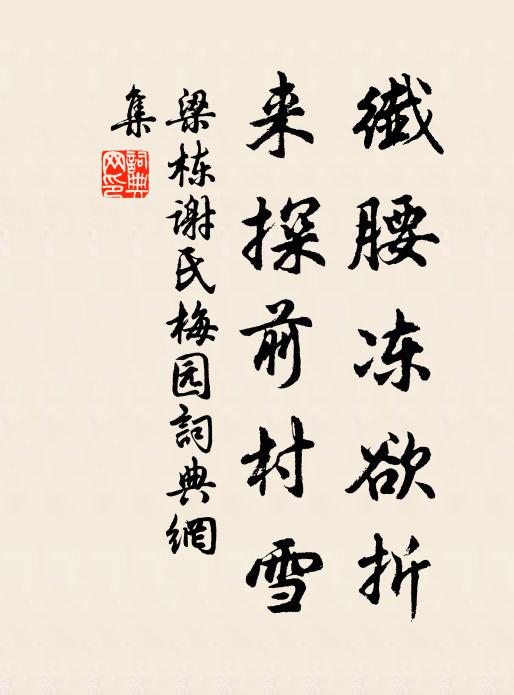 纖腰冻欲折
来探前村雪
梁栋谢氏梅园詞典網
集
詞典網印